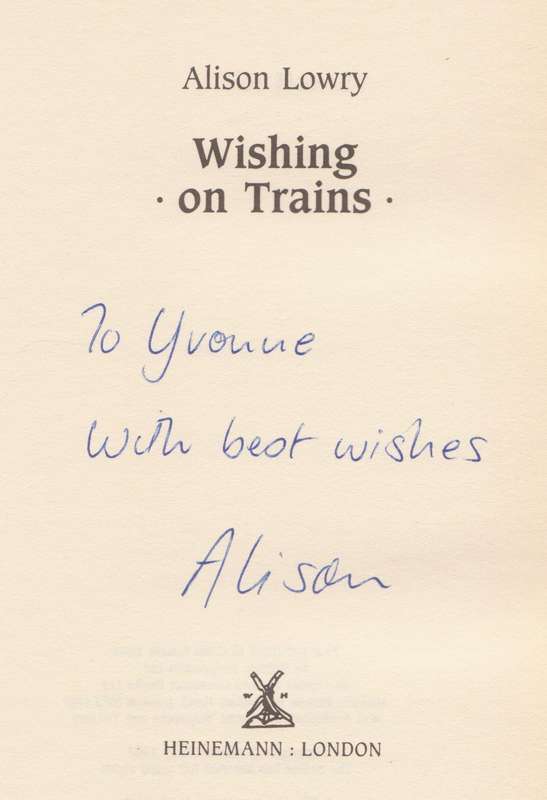 Alison Lowry
Wishing
· on Trains ·
To Yvonne
With best wishes
Alison
W H
HEINEMANN : LONDON